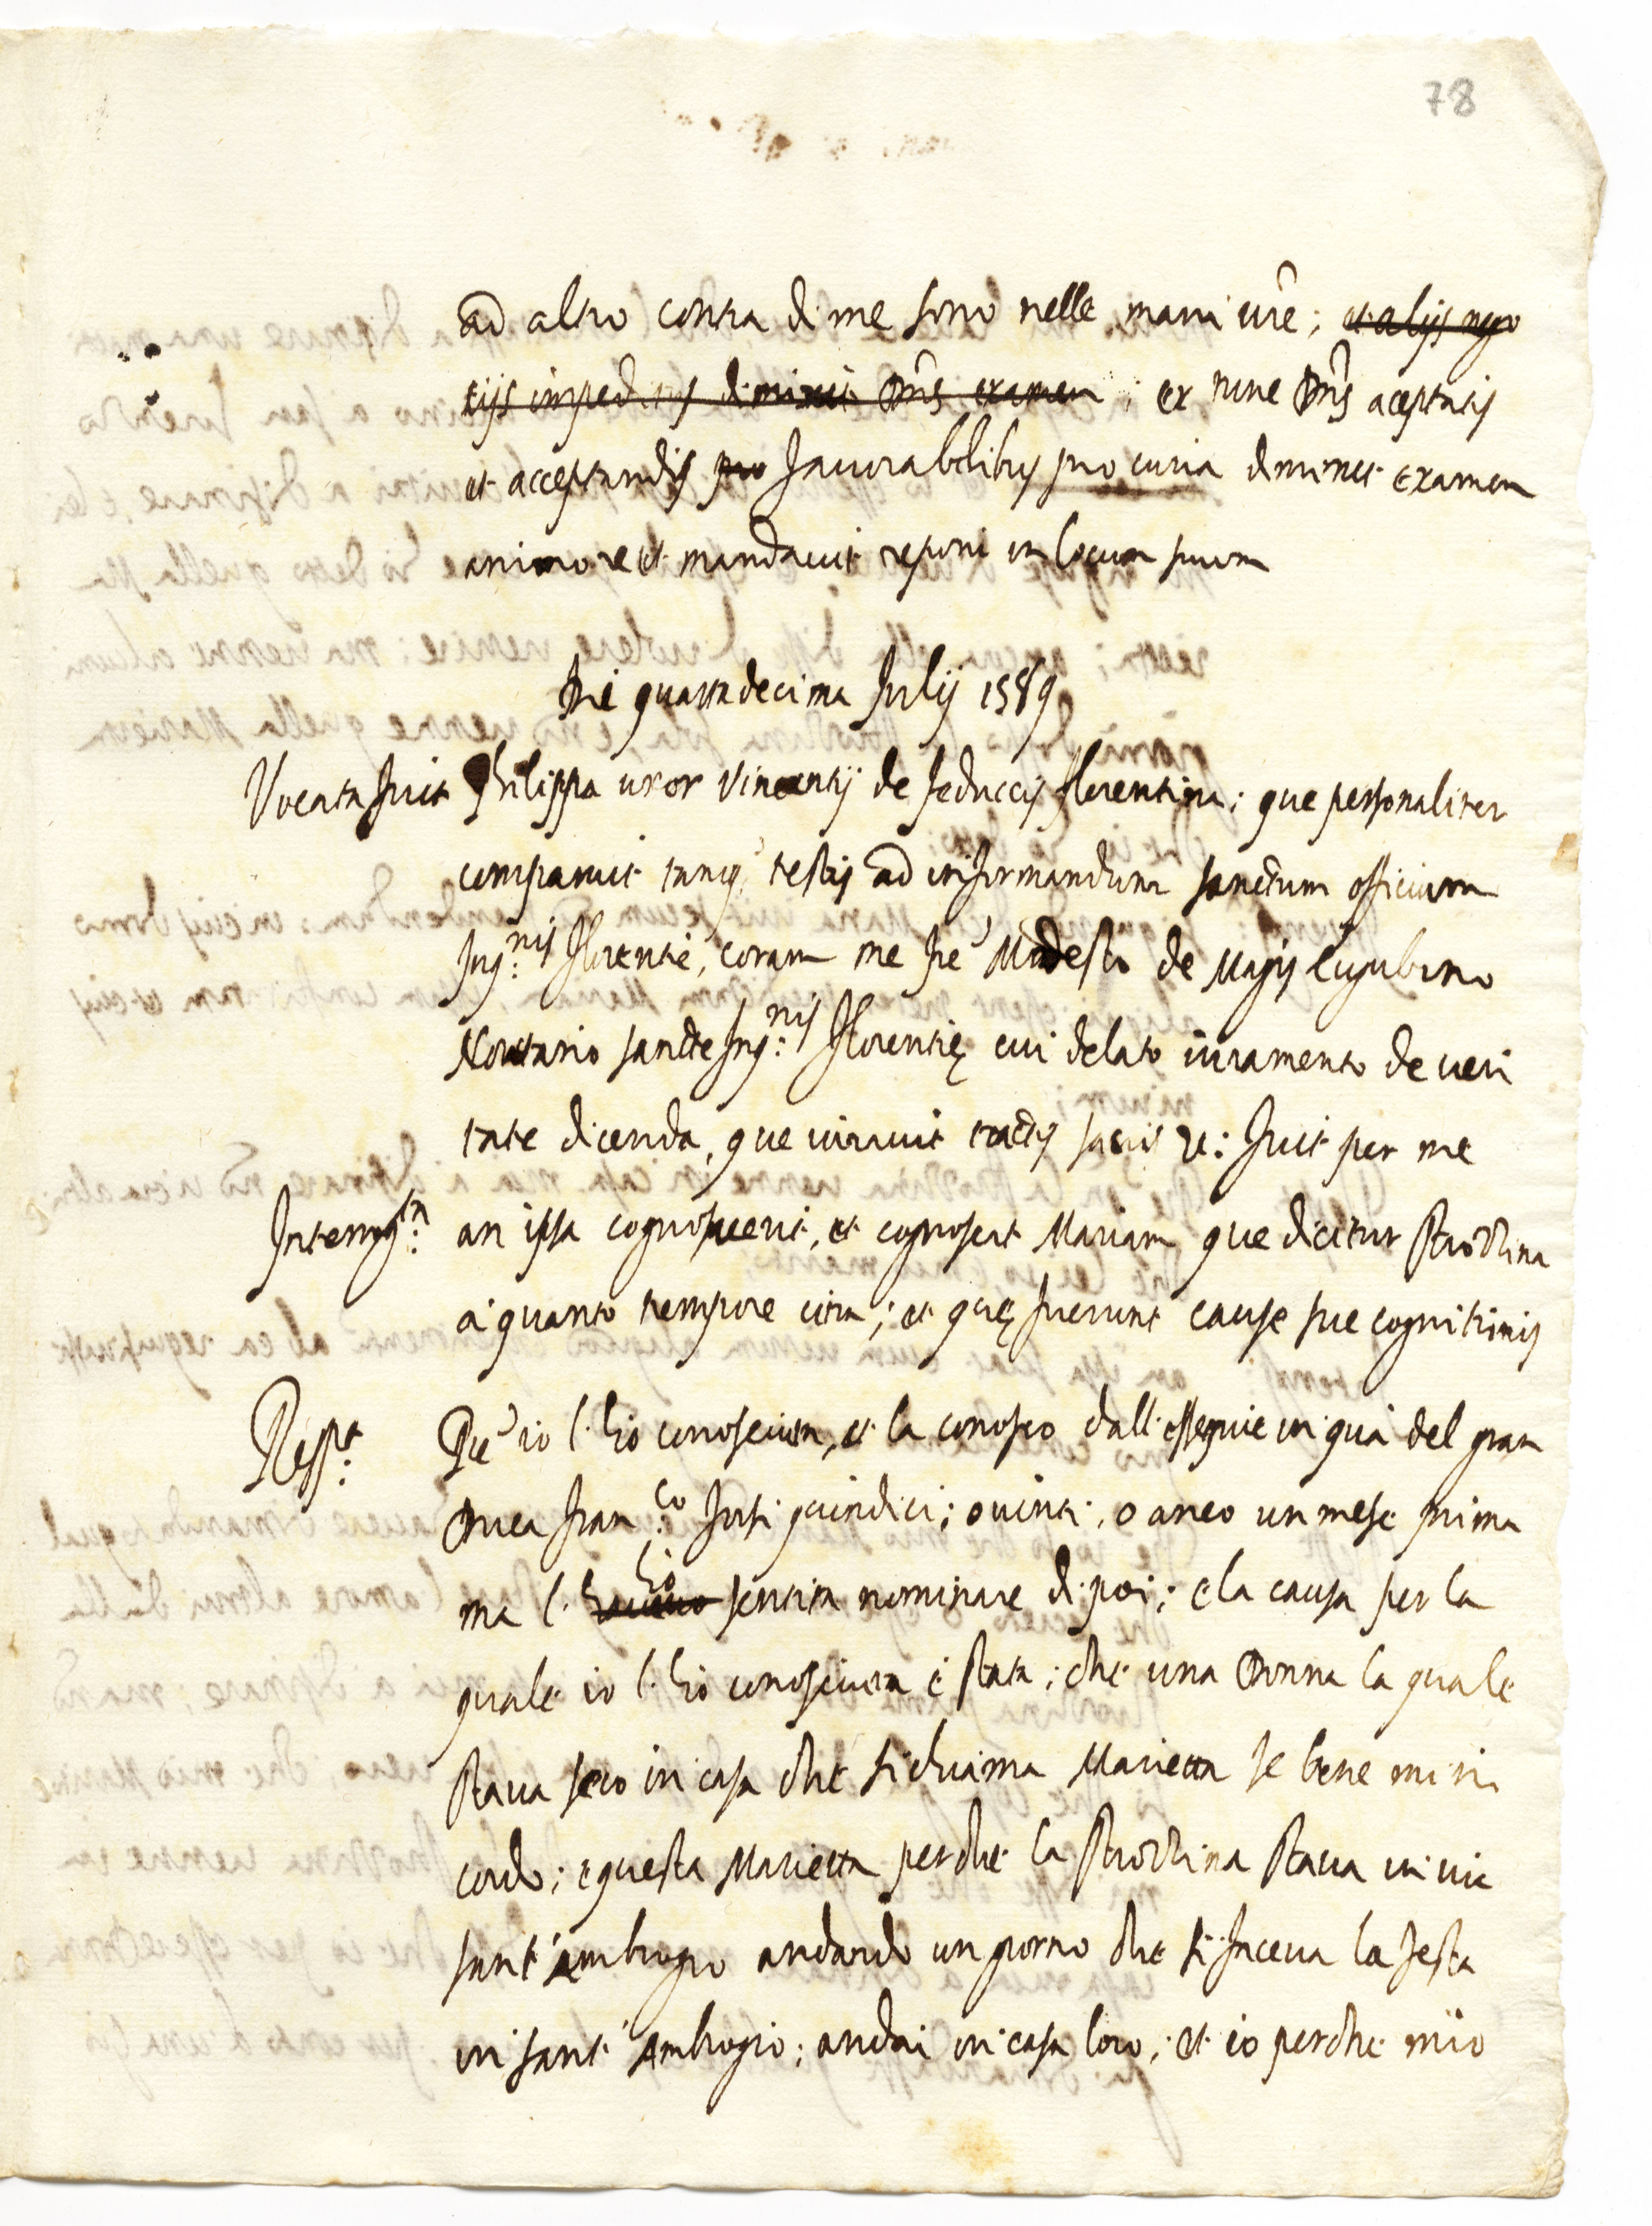 78
ad altro contra di me sono nelle mani vr̃e; et alijs nego
tijs impeditus dimisit Dn̄s examen; et tunc Dn̄s aceptatis
et acceptandis pro favorabilibus pro curia dimisit examen
animo &c et mandavit reponi in locum suum
Die quartadecima Julij 1589
Vocata fuit Philippa uxor Vincentij de Feduccis florentina; que personaliter
comparuit tanq̃ testis ad informandum sanctum officium
Inq:nis Florentie, coram me fre Modesto de Eugubino
Notario sancte Inq:nis Florentię cui delato iuramento de veri
tate dicenda, que iuravit tactis sacris &c: fuit per me
Interrog:ta an ipsa cognoverit, et cognoscat Mariam que dicitur Strozzina
a quanto tempore citra; et quę fuerunt cause sue cognitionis
Resp:t Che io l'hò conosciuta, et la conosco dall'essequie in quà del gran
Duca Fran:co forsi quindici; o vinti, o anco un mese prima
ma l' hò sentita nominare di poi; e la causa per la
quale io l'hò conosciuta è stata; che una Donna la quale
stava seco in casa che si chiama Marietta se bene mi ri
cordo; e questa Marietta perche la Strozzina stava in via
sant'Ambrogio andando un giorno che si faceva la festa
in sant'Ambrogio; andai in casa loro; et io perche mio